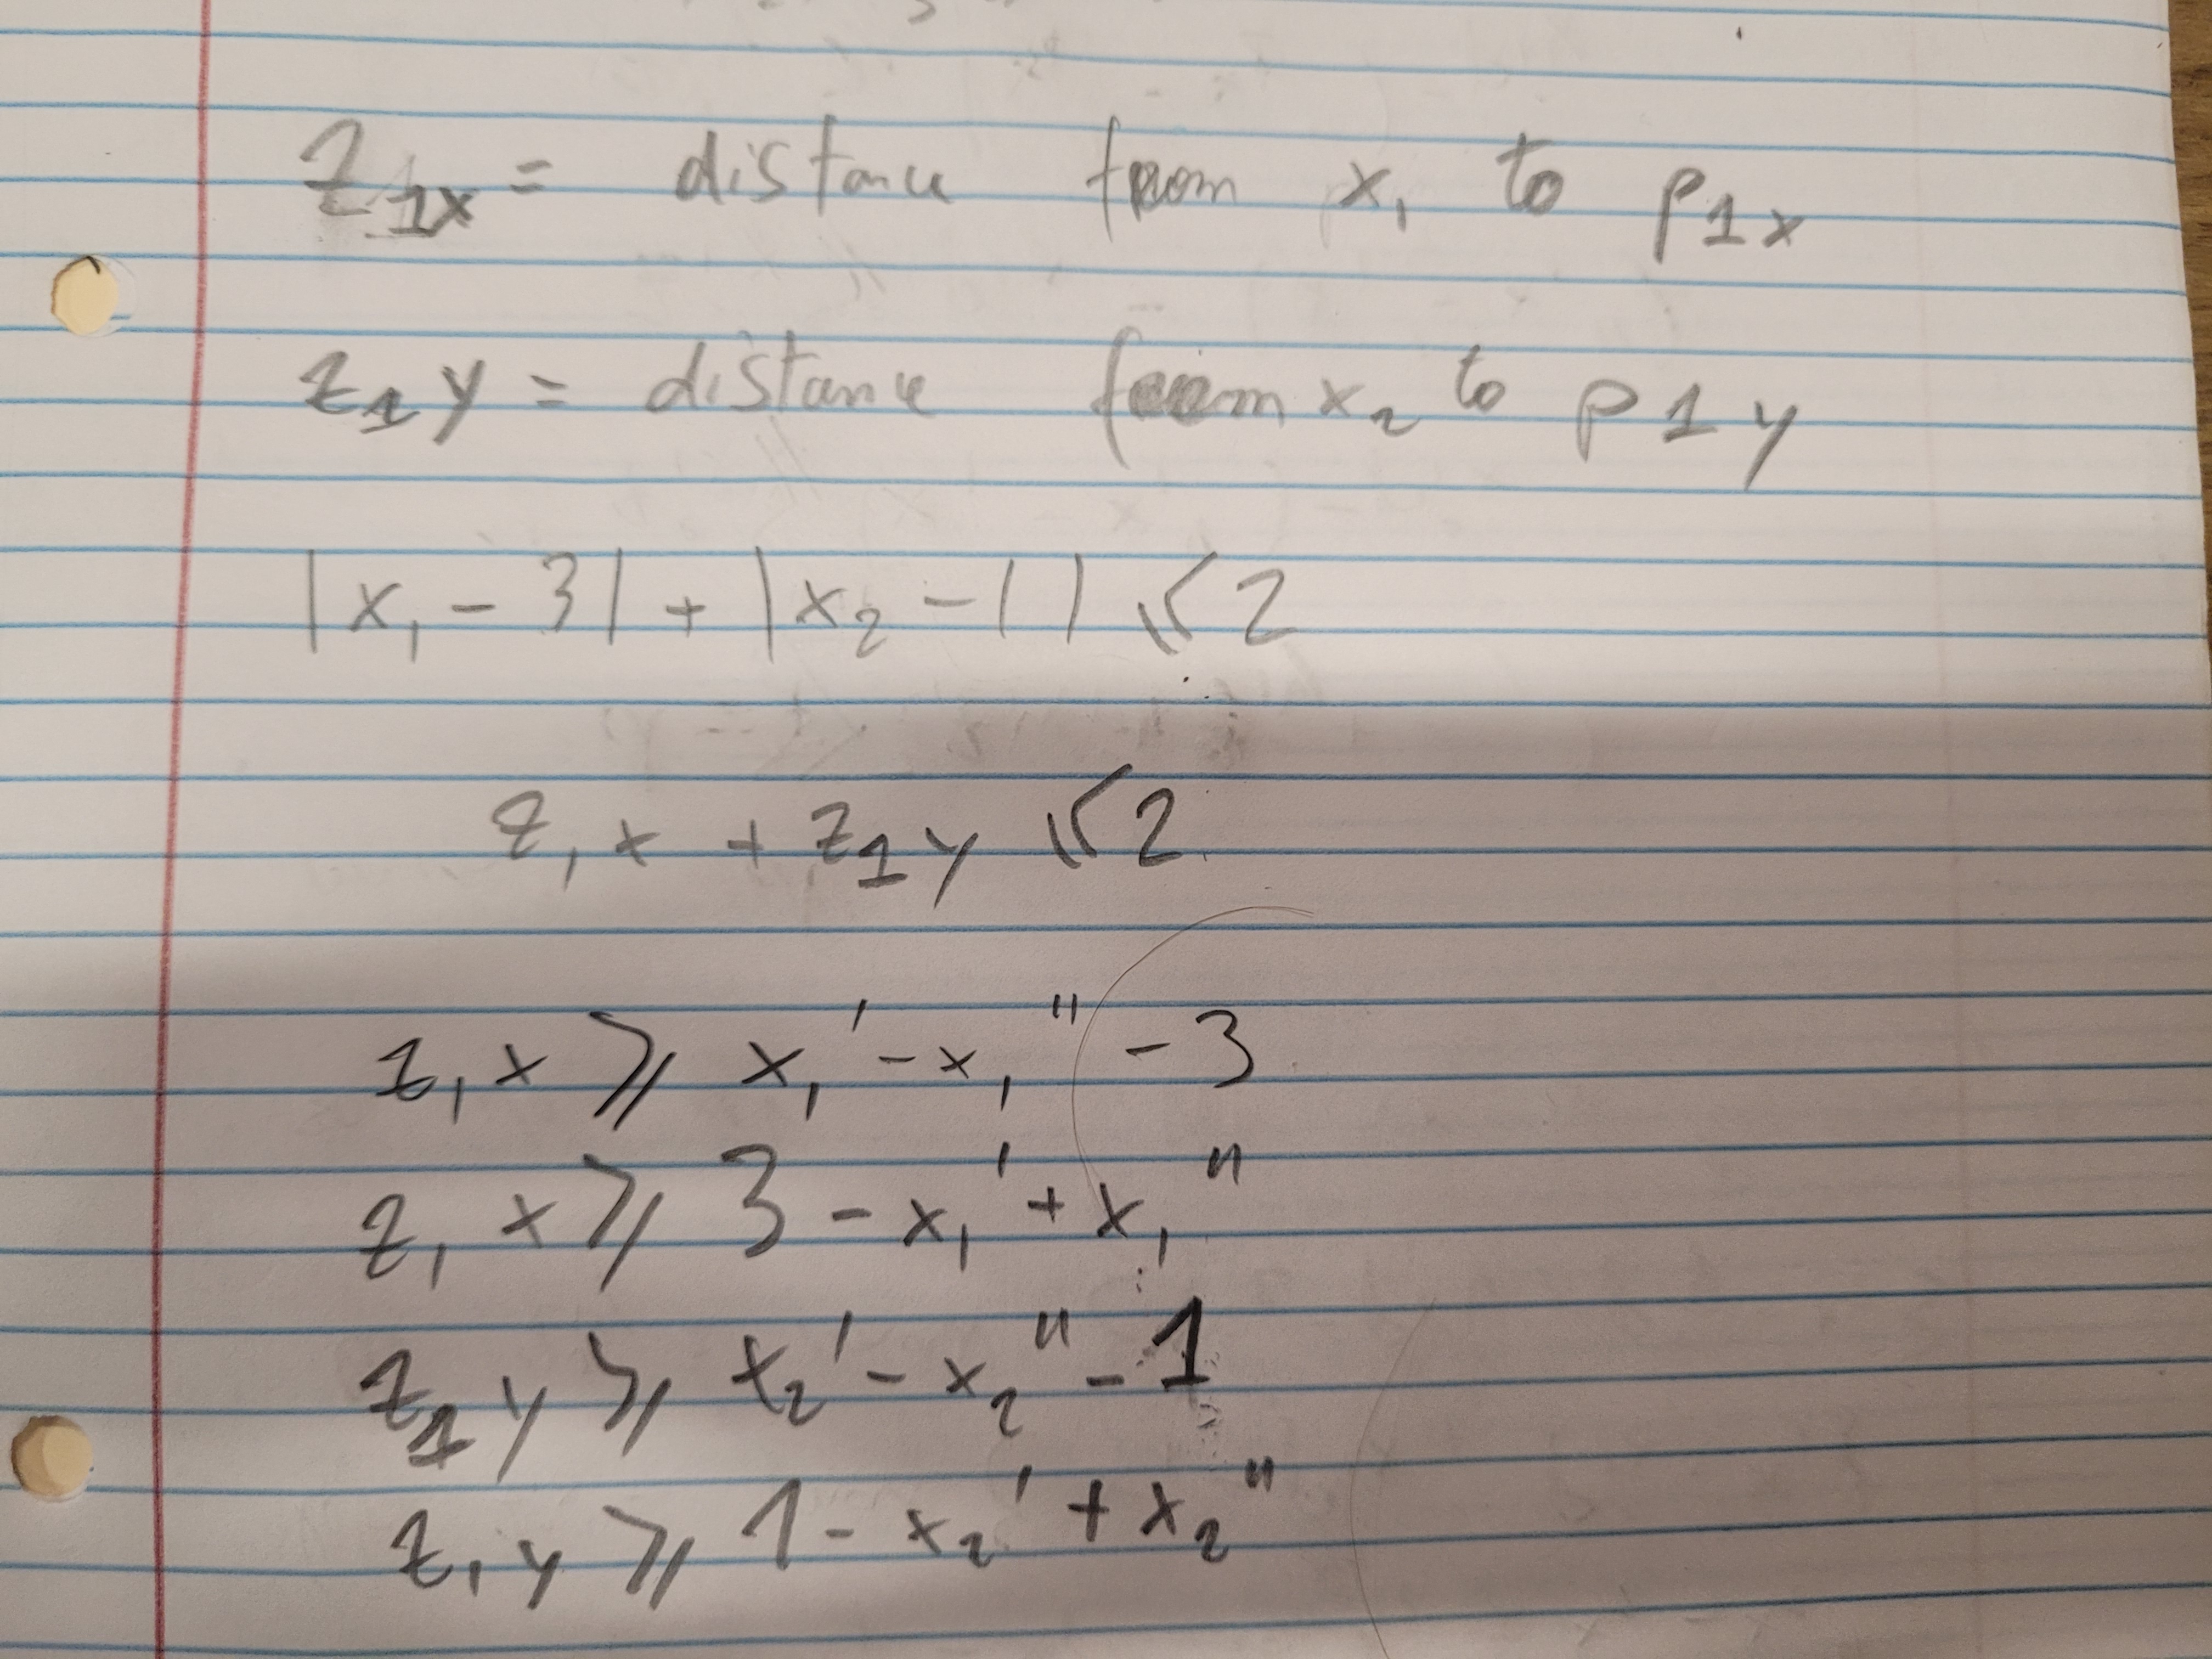 z₁ₓ = distance from x₁ to p1x
z₁y = distance from x₂ to p1y
|x₁ - 3| + |x₂ - 1| ≤ 2
z₁x + z₁y ≤ 2
z₁x ≥ x₁' - x₁'' - 3
z₁x ≥ 3 - x₁' + x₁''
z₁y ≥ x₂' - x₂'' - 1
z₁y ≥ 1 - x₂' + x₂''